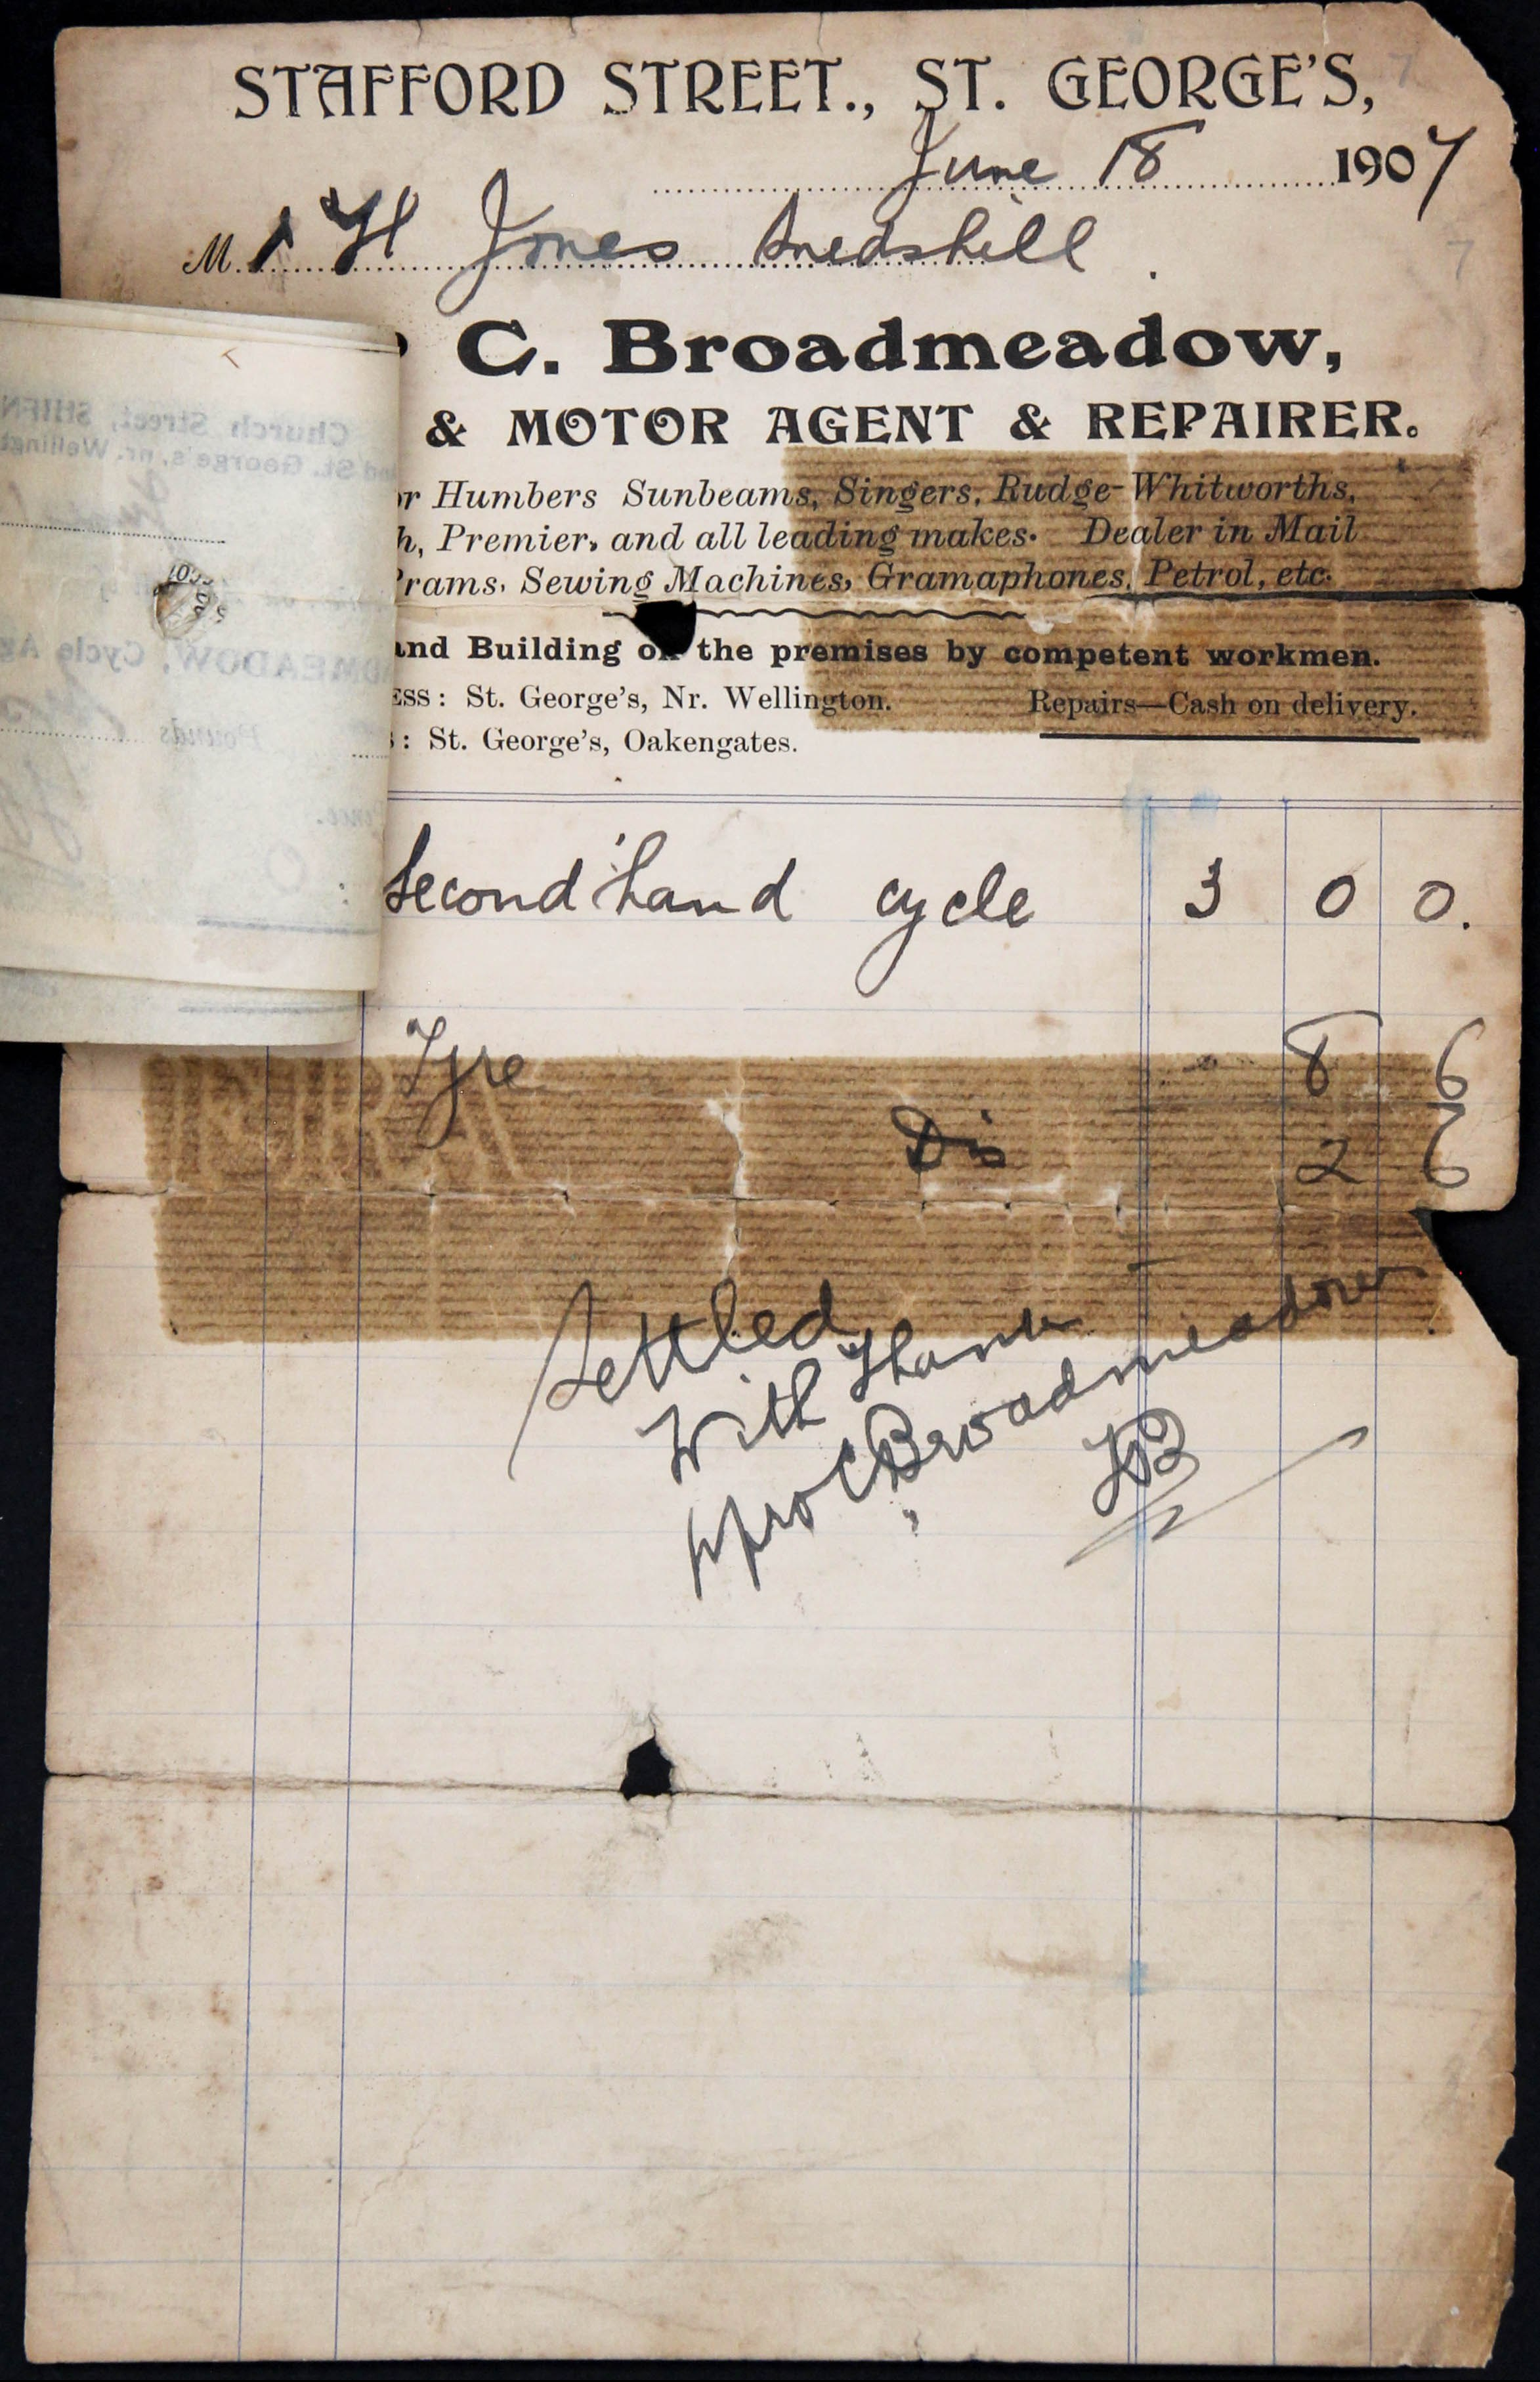 STAFFORD STREET., ST. GEORGE'S,
June 18 1907
Mr H Jones Snedshill.
C. Broadmeadow,
& MOTOR AGENT & REPAIRER.
or Humbers Sunbeams, Singers, Rudge-Whitworths,
h, Premier, and all leading makes. Dealer in Mail
Prams, Sewing Machines, Gramaphones, Petrol, etc.
and Building on the premises by competent workmen.
ESS: St. George's, Nr. Wellington. Repairs—Cash on delivery.
s: St. George's, Oakengates.
Church Street, SHIFN
nd St. George's, nr. Wellingt
DMEADOW, Cycle Ag
Pounds
ence.
Second hand cycle 3 0 0.
Tyre 8 6
Dis 2 6
Settled
With Thanks
pro C Broadmeadow